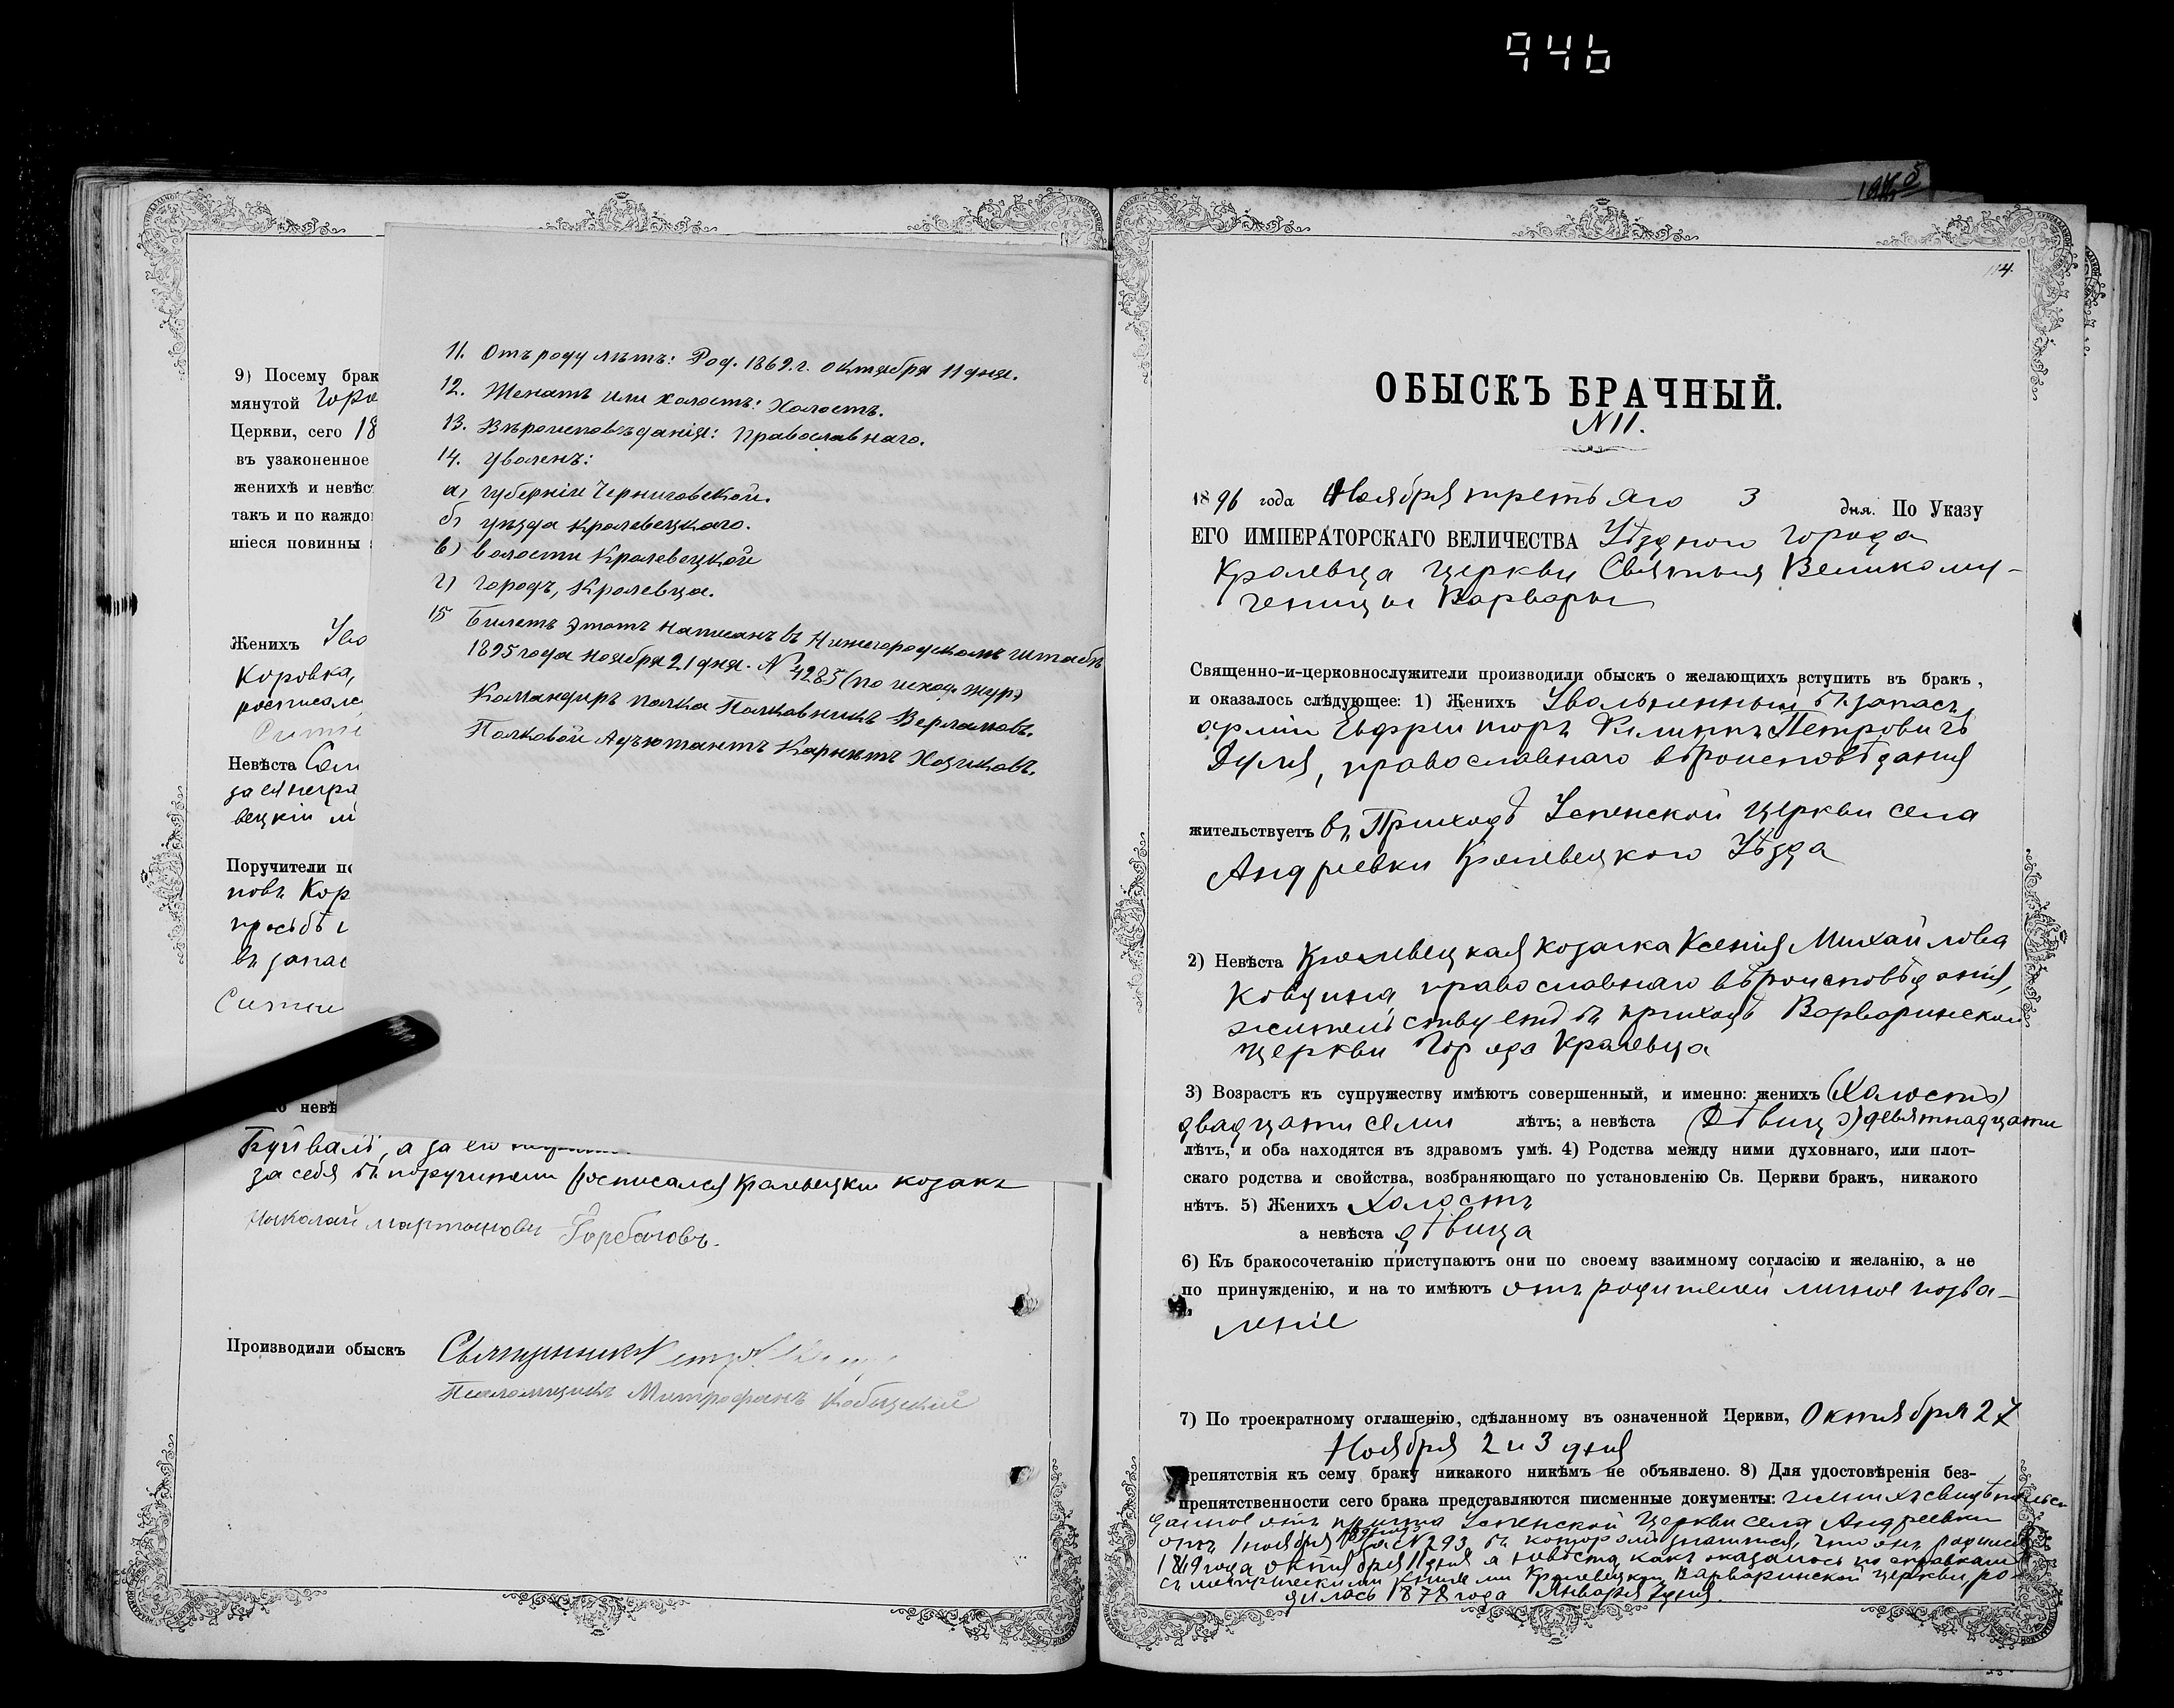 946
9) Посему брак
мянутой Горо
Церкви, сего 18
въ узаконенное
женихѣ и невѣс
такъ и по каждо
шіеся повинны
Женихъ
Коровка,
росписалс
Невѣста
за ея негра
вецкій
Поручители по
новъ Кор
просьбѣ
въ запас
11. Отъ роду лѣтъ: Род. 1869.г. октября 11 дня.
12. Женатъ или холостъ: Холостъ.
13. Вѣроисповѣданія: Православнаго.
14. Уволенъ:
а) губерніи Черниговской.
б) уѣзда Кролевецкаго.
в) волости Кролевецкой
г) городъ, Кролевца.
15 Билетъ этотъ написанъ въ Нижегородскомъ штабѣ
1895 года ноября 21 дня. № 4285 (по исход. жур)
Командиръ полка Полковникъ Верламовъ.
Полковой Адъютантъ Карнетъ Хозиковъ.
по невѣ
Буйвалъ, а за его
за себя въ поручители росписался Кролевецкій козакъ
Николай Мартыновъ Горбачовъ.
Производили обыскъ Священникъ
Псаломщикъ Митрофанъ
114
ОБЫСКЪ БРАЧНЫЙ.
№ 11.
1896 года Ноября третьяго 3 дня. По Указу
ЕГО ИМПЕРАТОРСКАГО ВЕЛИЧЕСТВА Уѣзднаго города
Кролевца церкви Святыя Великому-
ченицы Варвары
Священно-и-церковнослужители производили обыскъ о желающихъ вступить въ бракъ,
и оказалось слѣдующее: 1) Женихъ Увольненный въ запасъ
арміи Ефрейторъ Филиппъ Петровичъ
Дуля, православнаго вѣроисповѣданія
жительствуетъ въ Приходѣ Успенской церкви села
Андреевки Кролевецкаго Уѣзда
2) Невѣста Кролевецкая козачка Ксенія Михайлова
православнаго вѣроисповѣданія,
жительствуетъ въ приходѣ Варваринской
церкви города Кролевца
3) Возрастъ къ супружеству имѣютъ совершенный, и именно: женихъ (Холостъ)
двадцати семи лѣтъ; а невѣста (Дѣвица) девятнадцати
лѣтъ, и оба находятся въ здравомъ умѣ. 4) Родства между ними духовнаго, или плот-
скаго родства и свойства, возбраняющаго по установленію Св. Церкви бракъ, никакого
нѣтъ. 5) Женихъ холостъ
а невѣста дѣвица
6) Къ бракосочетанію приступаютъ они по своему взаимному согласію и желанію, а не
по принужденію, и на то имѣютъ отъ родителей личное позво-
леніе
7) По троекратному оглашенію, сдѣланному въ означенной Церкви, Октября 27
Ноября 2 и 3 дня
препятствія къ сему браку никакого никѣмъ не объявлено. 8) Для удостовѣренія без-
препятственности сего брака представляются писменные документы:
данное отъ причта Успенской церкви села Андреевки
отъ 1 ноября № 293, въ которомъ значится, что онъ родился
1869 года октября 11 дня а невѣста, какъ оказалось по справкамъ
съ метрическими книгами Кролевецкой Варваринской церкви, ро-
дилась 1878 года Января 7 дня.